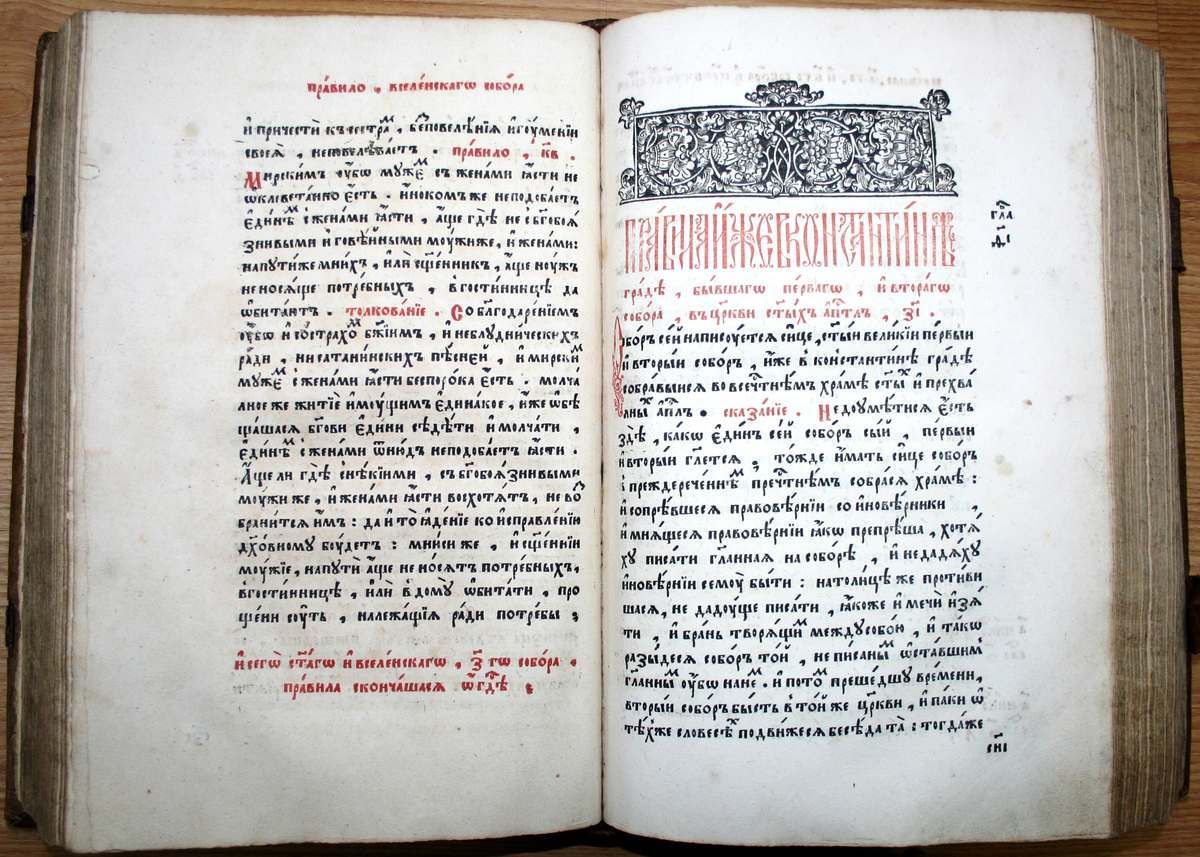 пра́вило , вселе́нскагѡ собо́ра
и҆ причестѝ къ сестра́мъ , бе́з повелѣ́нїѧ и҆гꙋ́менїи
своеѧ̀ , неповелѣва́етъ . пра́вило , к҃в .
Мирскимъ ᲂу҆́бѡ мꙋже́мъ съ женами ꙗ҆́сти не
ѡ҆клеветанно є҆́сть . и҆́нокомъ же неподоба́етъ
є҆ди́нѣмъ с женами ꙗ҆́сти , а҆́ще гдѣ̀ не с бг҃обоѧ́
знивыми и҆ говѣ́йными моу́жи же , и҆ женами :
на пꙋти́ же мни́хъ , и҆лѝ сщ҃е́нникъ , а҆́ще нꙋ́жъ
не носѧще потребныхъ , в гости́нницѣ да
ѡ҆бита́ютъ . толкова́нїе . Со бл҃годаре́нїемъ
ᲂу҆́бѡ и҆ со стра́хомъ бж҃їимъ , и҆ неблꙋдни́ческихъ
ради , ни сатани́нскихъ пѣ́сней , и҆ мирски́мъ
мꙋже́мъ с жена́ми ꙗ҆́сти беспоро́ка є҆́сть . молча́
лное же житїѐ и҆мꙋ́щимъ є҆дина́кое , и҆̀же ѡ҆бѣ
ща́шасѧ бг҃ови є҆ди́ни сѣдѣ́ти и҆ молча́ти ,
є҆ди́нѣмъ с жена́ми ѿню́дъ неподоба́етъ ꙗ҆́сти .
А҆́ще ли гдѣ̀ с нѣ́кїими , съ бг҃обоѧ́знивыми
мꙋ́жи же , и҆ жена́ми ꙗ҆́сти восхотѧ́тъ , не во́з
бранитсѧ и҆̀мъ : да и҆ то ꙗ҆де́нїе ко и҆справле́нїю
дх҃о́вномꙋ бꙋ́детъ : мни́си же , и҆ сщ҃е́ннїи
мꙋ́жїе , на пꙋтѝ а҆́ще не носѧ́тъ потре́бныхъ ,
в гости́нницѣ , и҆лѝ в домꙋ̀ ѡ҆бита́ти , про
ще́ни сꙋ́ть , належа́щїѧ ради потре́бы ;
и҆ сегѡ̀ ст҃а́гѡ и҆ вселе́нскагѡ , з҃ гѡ собо́ра ,
пра́вила сконча́шасѧ ѿгдѣ̀ ;
ПРА́ВИЛА И҆̀ЖЕ В КОНСТАНТИ́НѢ
гра́дѣ , бы́вшагѡ пе́рвагѡ , и҆ втора́гѡ
собо́ра , въ цр҃кви ст҃ы́хъ а҆пⷭ҇лъ , з҃і .
гла
д҃і
Собо́ръ се́й написꙋ́етсѧ си́це , ст҃ы́й вели́кїй пе́рвый
и҆ вторы́й собо́ръ , и҆́же в константи́нѣ гра́дѣ
собра́выйсѧ во всече́тнѣмъ хра́мѣ ст҃ы́хъ и҆ прехва́
лны а҆пⷭ҇лъ . сказа́нїе . Недоꙋмѣ́тисѧ є҆́сть
здѣ̀ , ка́кѡ є҆ди́нъ се́й собо́ръ сы́й , пе́рвый
и҆ вторы́й гл҃етсѧ ; то́ же да и҆́мать си́це собо́ръ
в преждерече́ннѣмъ пречⷭ҇тнѣмъ собра́сѧ хра́мѣ :
и҆ сопрѣ́вшесѧ правовѣ́рнїи со и҆новѣ́рники ,
и҆ мнѧ́щесѧ правовѣ́рнїи ꙗ҆́кѡ препрѣ́ша , хотѧ́
хꙋ писа́ти гл҃анная на собо́рѣ , и҆ недадѧ́хꙋ
и҆новѣ́рнїи семꙋ̀ бы́ти : на толи́цѣ же проти́ви
шасѧ , не дадꙋ́ще писа́ти , ꙗ҆́коже и҆ мечѝ и҆зѧ́
ти , и҆ бра́нь творѧ́щимъ междꙋ собо́ю , и҆ та́кѡ
разы́десѧ собо́ръ то́й , не пи́санымъ ѡ҆ста́вшимъ
гл҃аннымъ ᲂу҆́бѡ на не́мъ . и҆ пото́мъ преше́дшꙋ вре́мени ,
вторы́й собо́ръ бы́сть в то́й же цр҃кви , и҆ па́ки ѡ҆
тѣ́хже словесѣ́хъ подви́жесѧ бесѣ́да та̀ : тогда́же
сн҃і